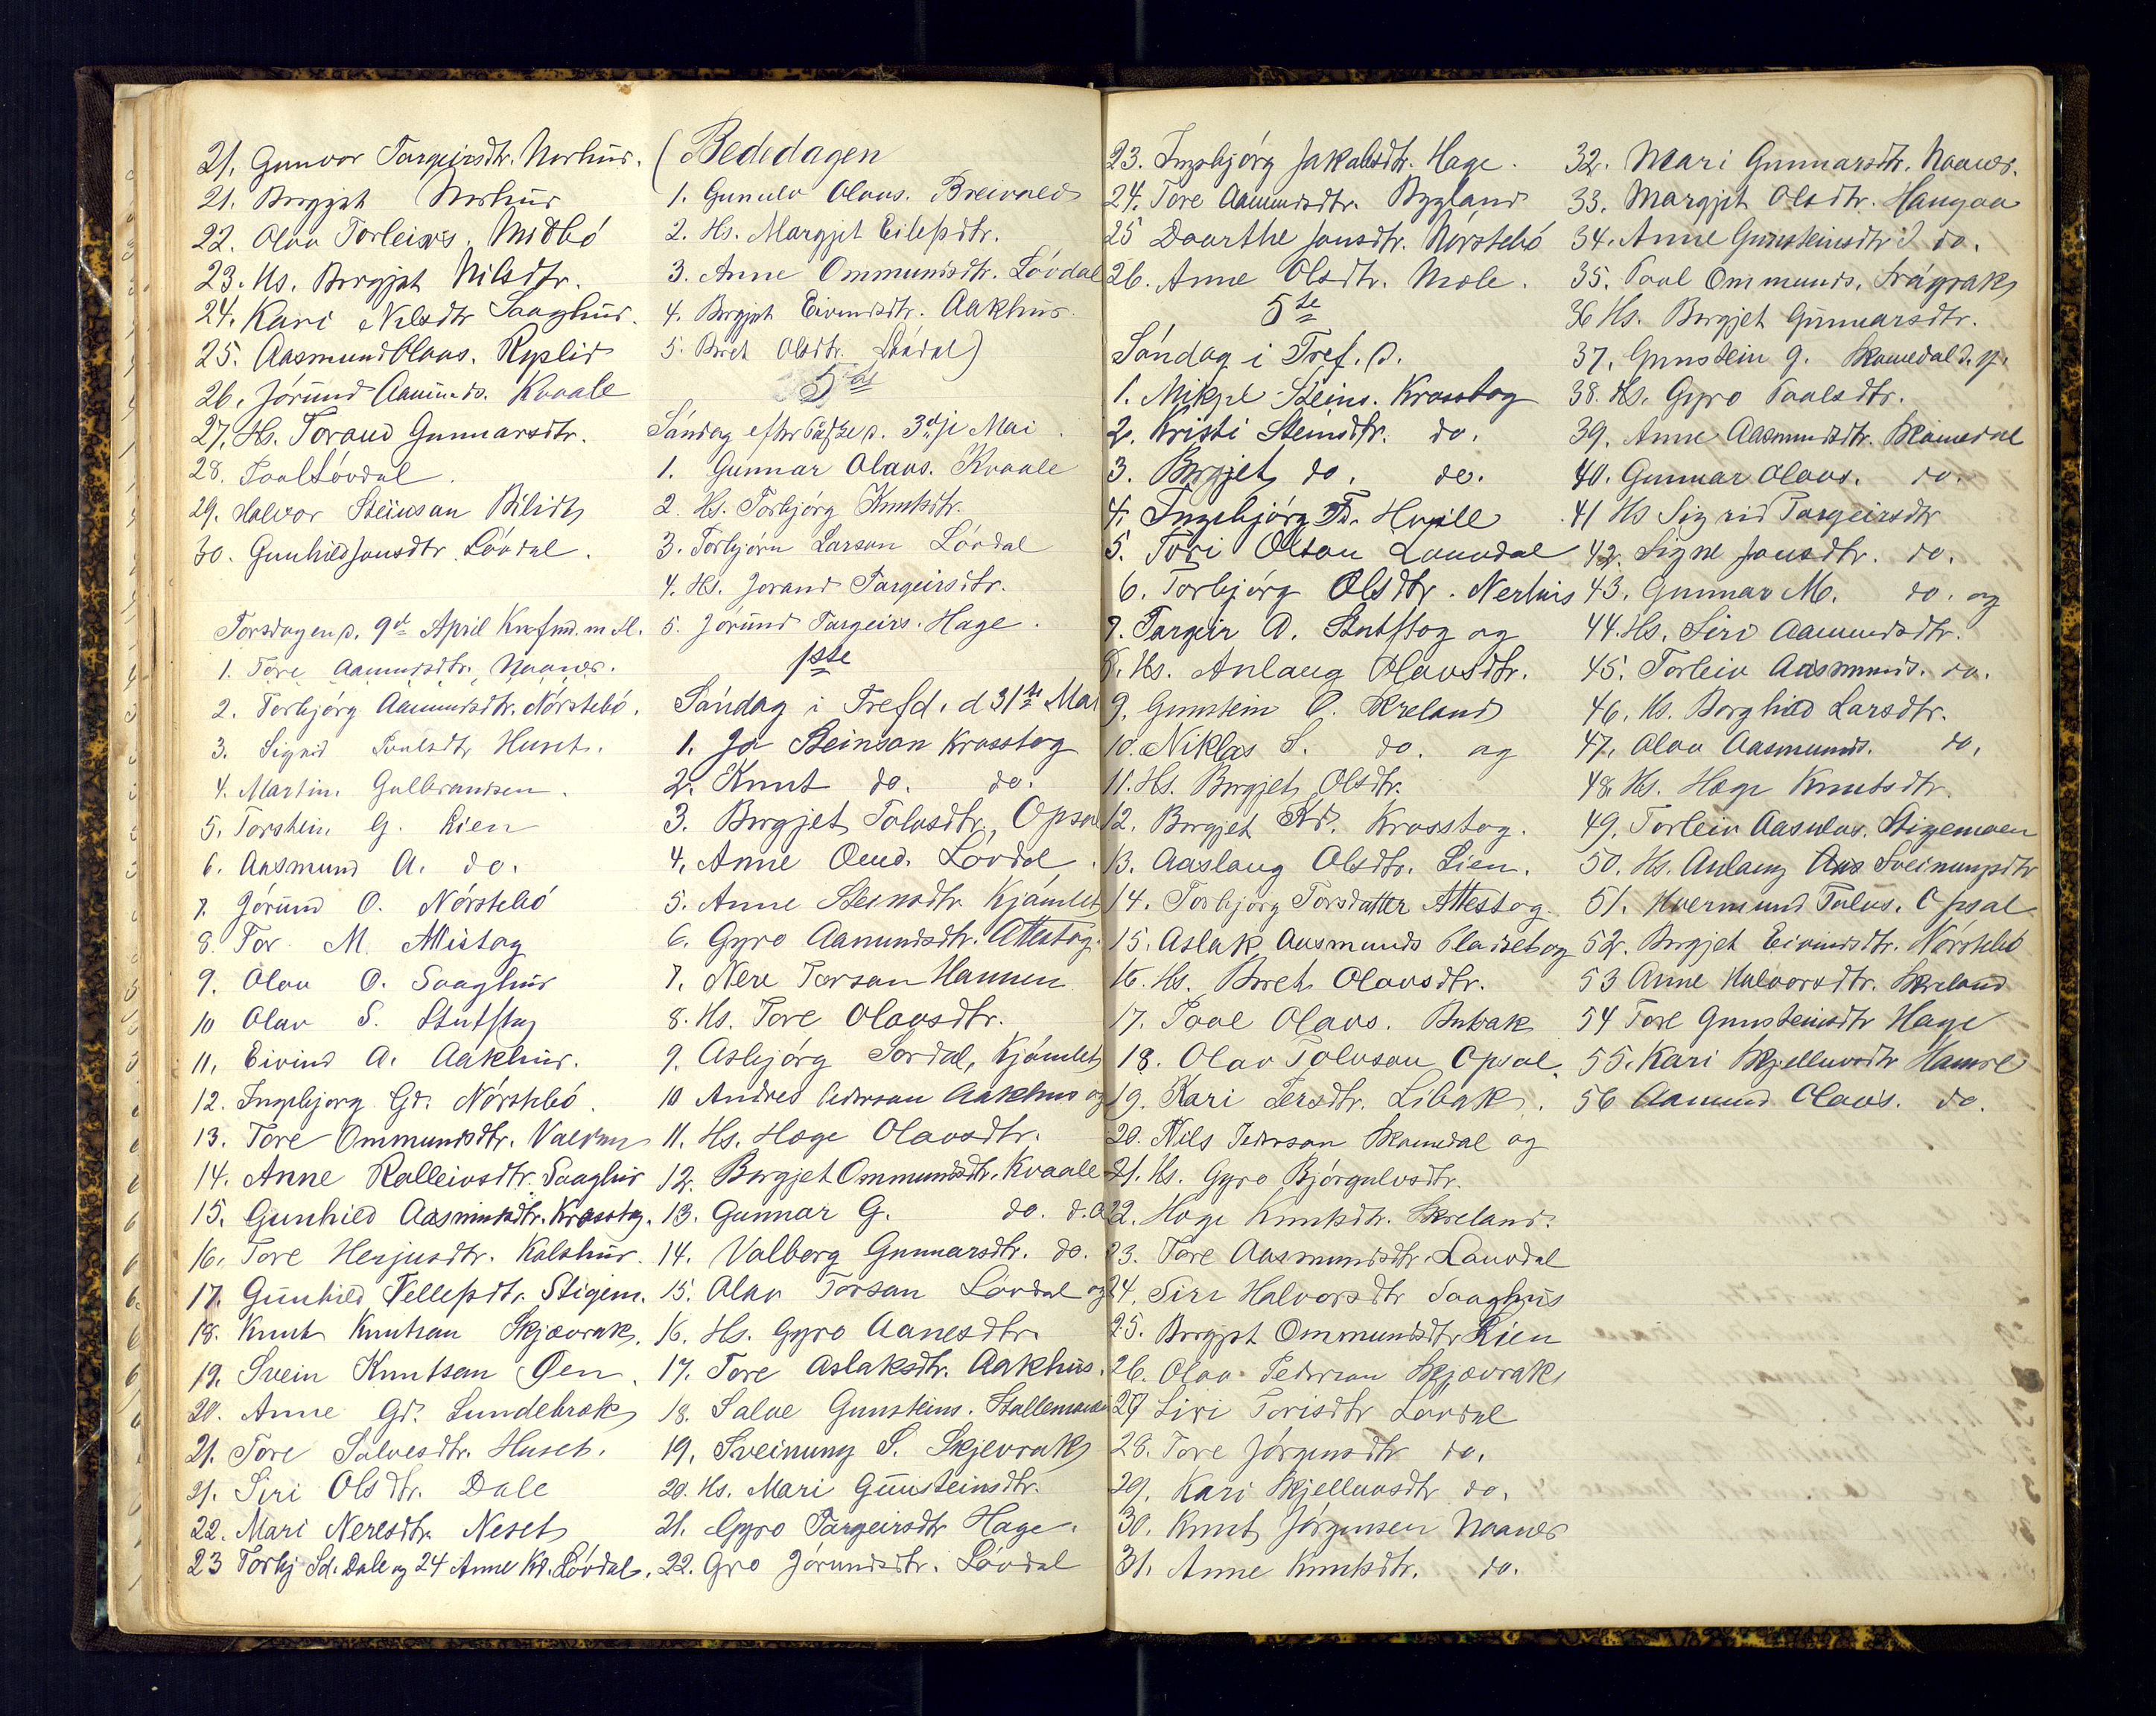 21. Gunvor Targeirsdtr. Nerhus.
21. Borgjet Nerhus
22. Olav Torleivs. Midbö
23. Hs. Borgjet Nilsdtr.
24. Kari Nilsdtr Saaghus.
25. Aasmund Olavs. Ryslid
26. Jörund Aamunds. Kvaale
27. Hs. Torand Gunnarsdtr.
28. Paal Lövdal.
29. Halvor Steinson
30. Gunhild Jonsdtr Lövdal.
Torsdagen p. 9de April Knfmd. m fl.
1. Tore Aamundsdtr. Naanes.
2. Torbjörg Aamundsdtr. Nörstebö.
3. Sigrid Paalsdtr Huset.
4. Martin Gulbrandsen.
5. Torstein G. Lien
6. Aasmund A. do.
7. Jörund O. Nörstebö
8. Tor M. Attistog
9. Olav O. Saaghus
10 Olav S. Stutstog
11. Eivind A. Aakhus.
12. Ingebjorg Gd. Nörstebö.
13. Tore Ommundsdtr.
14. Anne Rolleivsdtr. Saaghus
15. Gunhild Aasmundsdtr. Krosstog.
16. Tore Herjusdtr. Kalshus.
17. Gunhild Tellefsdtr. Stigem.
18. Knut Knutson Skjævrak.
19. Svein Knutsen Öen.
20. Anne Gd. Lundebrok
21. Tore Salvesdtr. Huset.
21. Siri Olsdtr. Dale
22. Mari Neresdtr. Neset
23 Torbj Sd. Dale og 24 Anne Kd. Lövdal.
(Bededagen
1. Gunulv Olavs. Breivold
2. Hs. Margjet Eilefsdtr.
3. Anne Ommundsdtr. Lövdal
4. Borgjet Eivindsdtr. Aakhus.
5. Beret Olsdtr. Lövdal)
5te
Söndag efter Paaske p. 3dje Mai.
1. Gunnar Olavs. Kvaale
2. Hs. Torbjörg Knutsdtr.
3. Torbjörn Larson Lövdal
4. Hs. Jorand Targeirsdtr.
5. Jörund Targeirs. Hage.
1ste
Söndag i Trefd. d 31te Mai
1. Jo Steinson Krosstog
2. Knut do. do.
3. Borgjet Tolvsdtr, Opsal
4. Anne Omd. Lövdal.
5. Anne Steinsdtr. Kjömlet
6. Gyro Aanundsdtr. Attestog.
7. Nere Torson Hannen
8. Hs. Tore Olavsdtr.
9. Asbjörg Sordal, Kjömlet
10 Andres Pederson Aakhus og
11. Hs. Hoge Olavsdtr.
12. Borgjet Ommundsdtr. Kvaale
13. Gunnar G. do. d.o
14. Valborg Gunnarsdtr. do.
15. Olav Torson Lövdal og
16. Hs. Gyro Aanesdtr.
17. Tore Aslaksdtr. Aakhus.
18. Salve Gunsteins. Stallemoen
19. Sveinung S. Skjevrak
20. Hs. Mari Gunsteinsdtr.
21. Gyro Targeirsdtr Hage.
22. Gro Jörundsdtr. Lövdal
23. Ingebjörg Jakobsdtr. Hage.
24. Tore Aamundsdtr. Bygland
25 Daarthe Jonsdtr. Nörstebö
26. Anne Olsdtr. Mole.
5te
Söndag i Tref. p.
1. Mikjel Steins. Krosstog
2. Kristi Steinsdtr. do.
3. Borgjet do. do.
4. Ingebjörg Td.
5. Tori Olson Lauvdal
6. Torbjörg Olsdtr. Nerhus
7. Targeir A. Stutstog og
8. Hs. Anlaug Olavsdtr.
9. Gunstein O. Kreland
10. Niklas S. do. og
11. Hs. Borgjet Olsdtr.
12. Borgjet Kd. Krosstog.
13. Aaslaug Olsdtr. Lien.
14. Torbjörg Torsdatter Attestog.
15. Aslak Aasmunds og
16. Hs. Beret Olavsdtr.
17. Paal Olavs.
18. Olav Tolvson Opsal.
19. Kari Persdtr. Libak.
20. Nils Pederson Skomedal og
21. Hs. Gyro Björgulvsdtr.
22. Hoge Knutsdtr. Skreland.
23. Tore Aasmundsdtr. Lauvdal
24. Siri Halvorsdtr Saaghus
25. Borgjet Ommundsdtr Lien
26. Olav Pederson Skjævrak
27 Siri Torisdtr Lövdal
28. Tore Jörgensdtr do.
29. Kari Skjellunsdtr do.
30. Knut Jörgensen Naanes
31. Anne Knutsdtr. do.
32. Mari Gunnarsdtr. Naanes.
33. Margjit Olsdtr. Haugaa
34. Anne Gunsteinsdtr do.
35. Paal Ommunds.
36 Hs. Borgjet Gunnarsdtr.
37. Gunstein G. Skomedal
38. Hs. Gyro Paalsdtr.
39. Anne Aasmundsdtr. Skomedal
40. Gunnar Olavs. do.
41 Hs Sigrid Targeirsdtr
42. Signe Jonsdtr. do.
43. Gunnar M. do. og
44. Hs. Siri Aamundsdtr.
45. Torleiv Aasmunds. do.
46. Hs. Borghild Larsdtr.
47. Olav Aasmunds. do.
48. Hs. Hoge Knutsdtr.
49. Torleiv Aasulvs. Stigemoen
50. Hs. Anlaug Sveinungsdtr
51. Hvermund Tolvs. Opsal
52. Borgjet Eivindsdtr. Nörstebö
53 Anne Halvorsdtr. Skreland
54 Tore Gunsteinsdtr Hage
55. Kari Skjellunsdtr Hamre
56 Aamund Olavs. do.